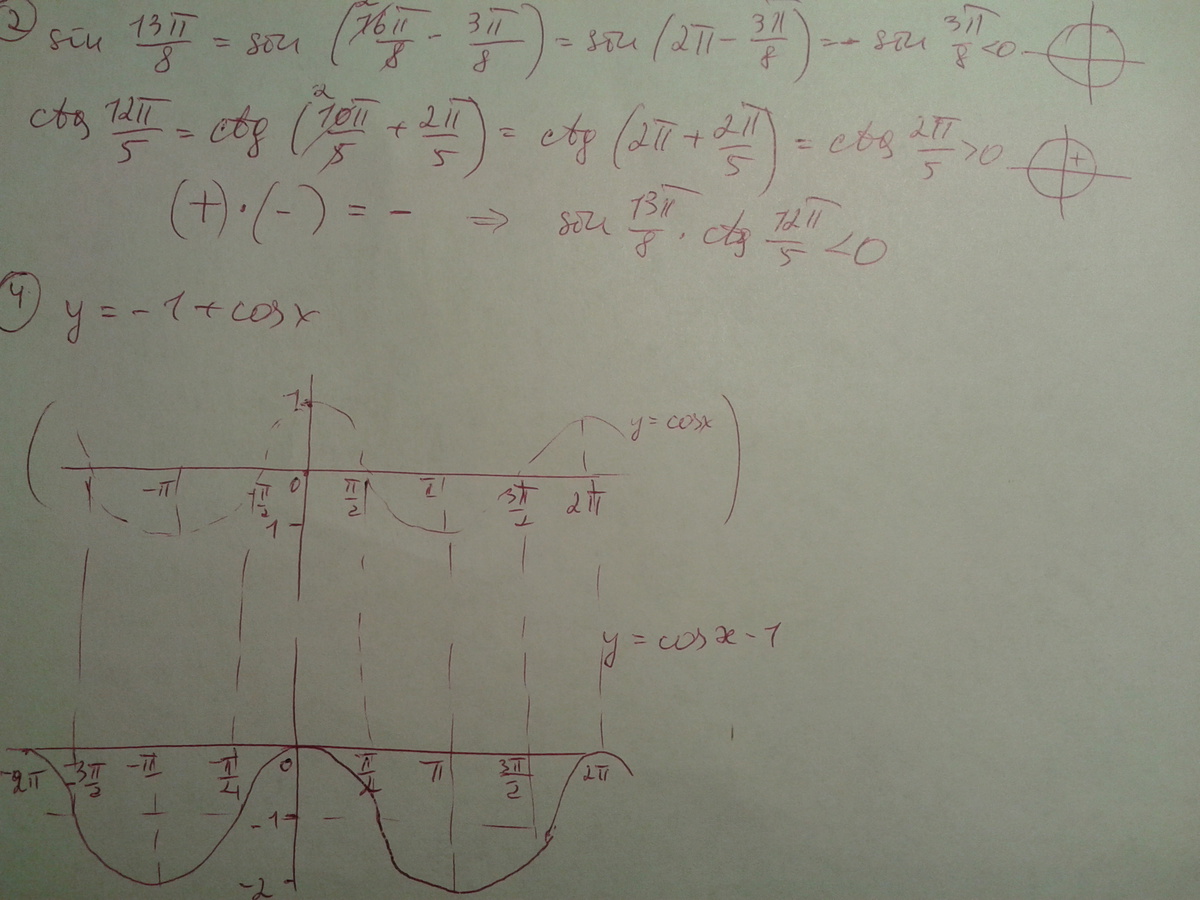 ② sin 13π/8 = sin (16π/8 - 3π/8) = sin (2π - 3π/8) = - sin 3π/8 < 0
ctg 12π/5 = ctg (10π/5 + 2π/5) = ctg (2π + 2π/5) = ctg 2π/5 > 0 +
(+)·(-) = - ⇒ sin 13π/8 · ctg 12π/5 < 0
④ y = -1 + cosx
1
y = cosx
-π 0 π/2 π 3π/2 2π
1
y = cosx - 1
-2π -3π/2 -π 0 π 3π/2 2π
-1
-2